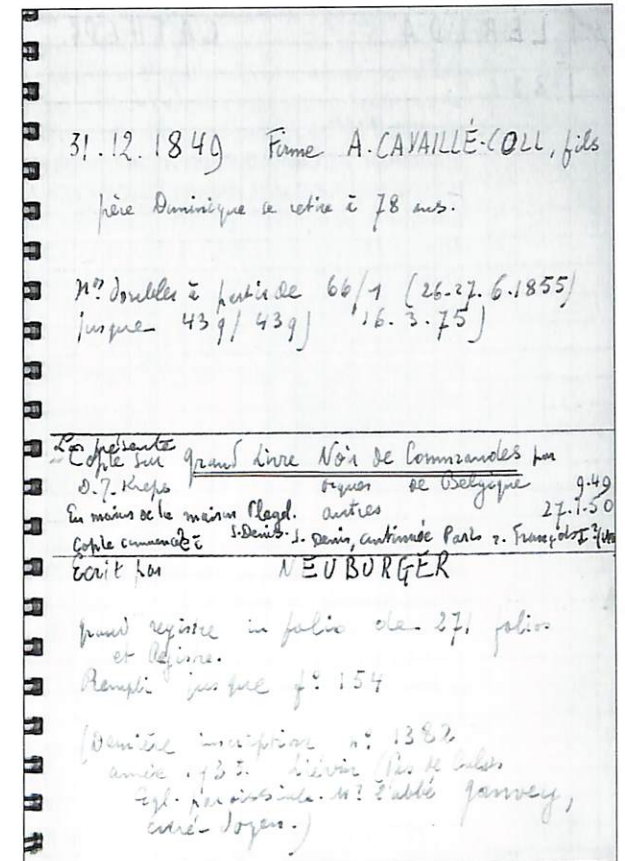 31.12.1849 Firme A.CAVAILLÉ-COLL, fils
père Dominique se retire à 78 ans.
Nos doubles à partir de 66/1 (26-27.6.1855)
jusque 439/439) 16.3.75)
La présente
Copie sur grand Livre Noir de Commandes par
D.J. Kreps orgues de Belgique 9.49
En mains de la maison Pleyel. autres 27.1.50
Copie commencée à S.Denis. S. Denis, continuée Paris r. François I
Ecrit par NEUBURGER
grand registre in folio de 271 folios
et Registre.
Rempli jusque fo 154
(Dernière inscription no 1382
année Liévin (Pas de Calais
Egl. paroissiale. Mr l'abbé
curé-doyen.)